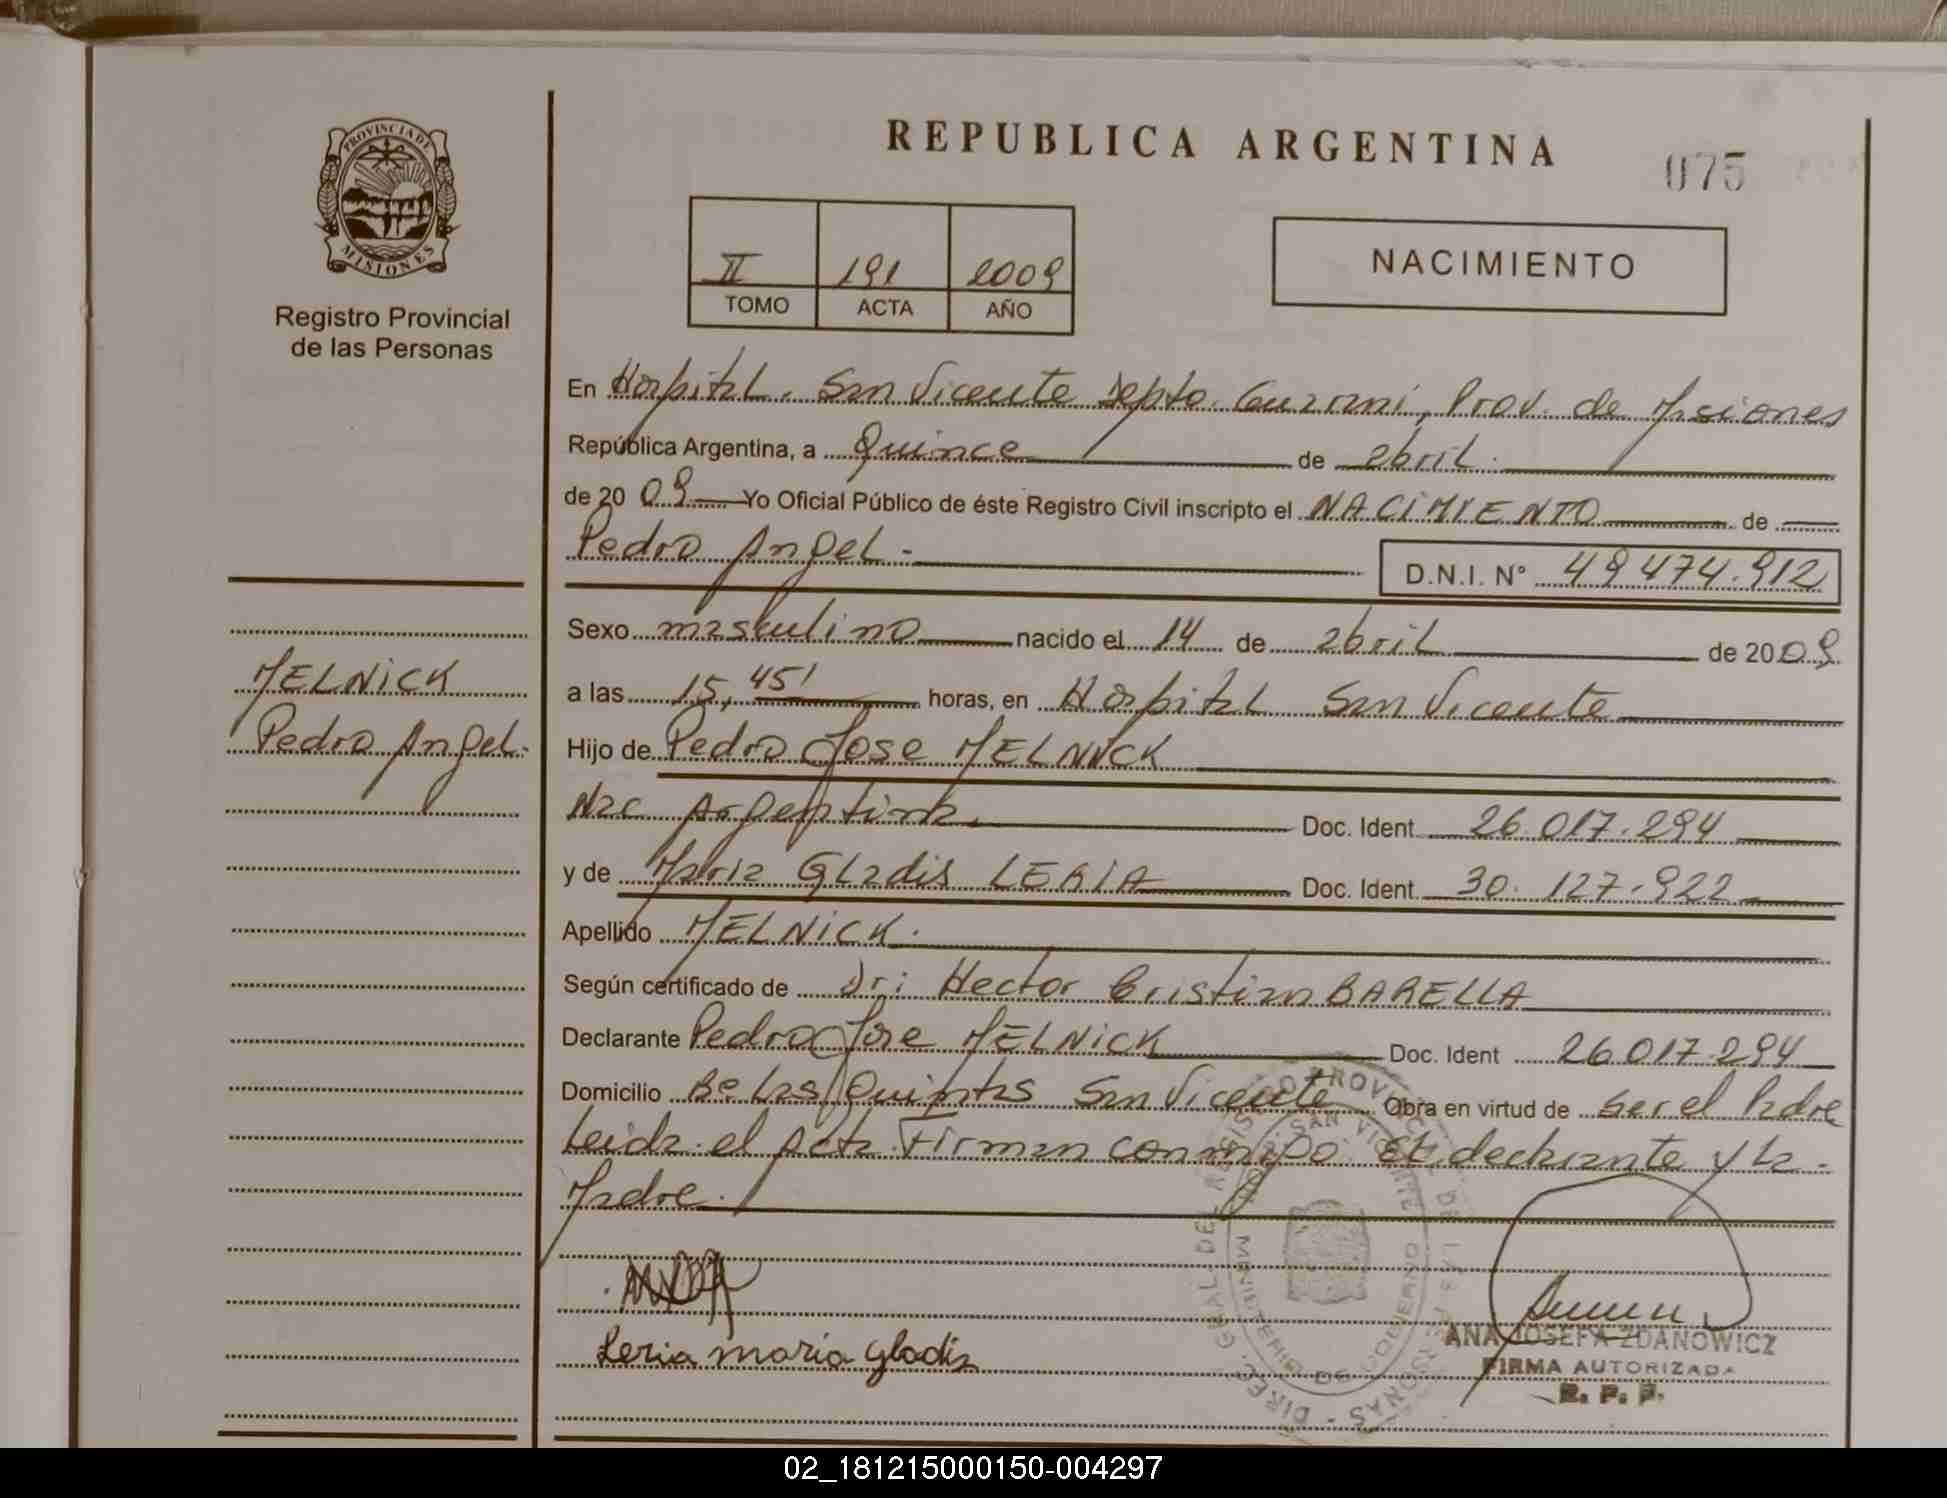 REPUBLICA ARGENTINA
075
PROVINCIA DE
MISIONES
Registro Provincial
de las Personas
II 191 2009
TOMO ACTA AÑO
NACIMIENTO
En Hospital. San Vicente Depto. Guarani, Prov. de Misiones
República Argentina, a Quince de abril.
de 2009 Yo Oficial Público de éste Registro Civil inscripto el NACIMIENTO de
Pedro Angel.-
D.N.I. N° 49474.912
Sexo masculino nacido el 14 de abril de 2009
MELNICK
Pedro Angel.
a las 15,45' horas, en Hospital San Vicente
Hijo de Pedro Jose MELNICK
Nac Argentina. Doc. Ident 26.017.294
y de Maria Gladis LERIA Doc. Ident. 30.127.922
Apellido MELNICK.
Según certificado de Dr: Hector Cristian BARELLA
Declarante Pedro Jose MELNICK Doc. Ident 26017.294
Domicilio Bo Las Quintas San Vicente Obra en virtud de ser el Padre
Leida el Acta Firman conmigo El declarante y la-
Madre.
Leria maria gladis
ANA JOSEFA ZDANOWICZ
FIRMA AUTORIZADA
R. P. P.
02_181215000150-004297